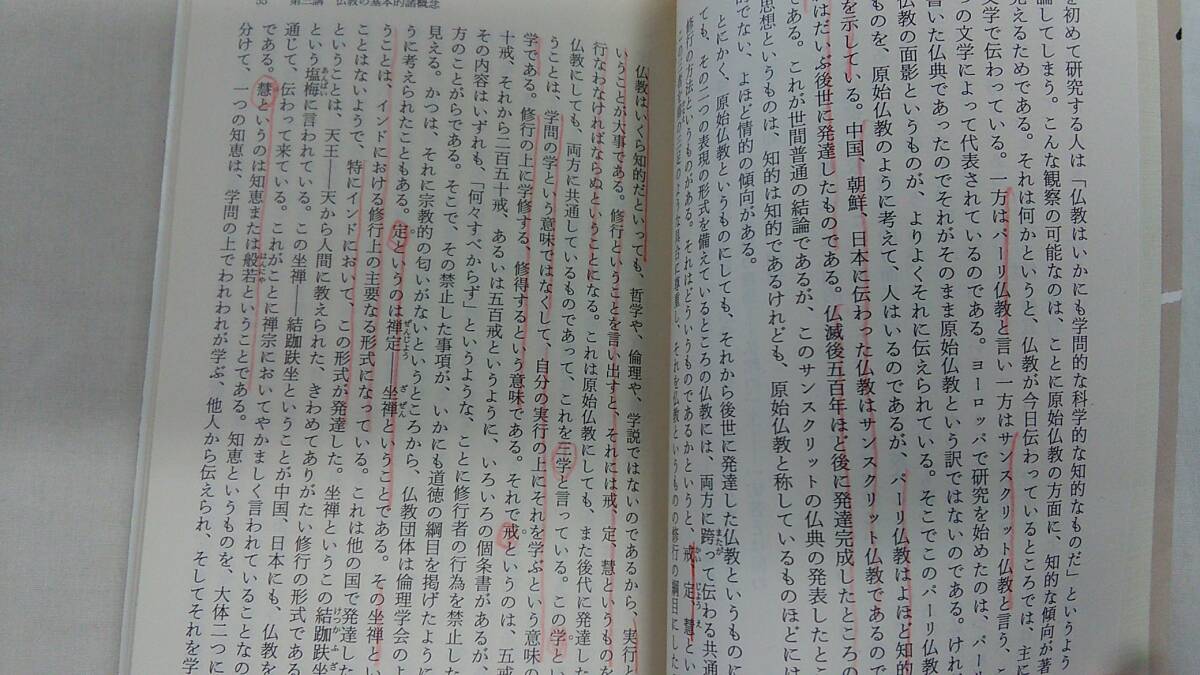 を初めて研究する人は「仏教はいかにも学問的な科学的な知的なものだ」というよう
論してしまう。こんな観察の可能なのは、ことに原始仏教の方面に、知的な傾向が著
見えるためである。それは何かというと、仏教が今日伝わっているところでは、主に
文学で伝わっている。一方はパーリ仏教と言い一方はサンスクリット仏教と言う、こ
つの文学によって代表されているのである。ヨーロッパで研究を始めたのは、パーリ
書いた仏典であったのでそれがそのまま原始仏教という訳ではないのである。けれ
仏教の面影というものが、よりよくそれに伝えられている。そこでこのパーリ仏教
ものを、原始仏教のように考えて、人はいるのであるが、パーリ仏教はよほど知的
を示している。中国、朝鮮、日本に伝わった仏教はサンスクリット仏教であるので
はだいぶ後世に発達したものである。仏滅後五百年ほど後に発達完成したところの
である。これが世間普通の結論であるが、このサンスクリットの仏典の発表したとこ
思想というものは、知的は知的であるけれども、原始仏教と称しているものほどには
的でない、よほど情的の傾向がある。
とにかく、原始仏教というものにしても、それから後世に発達した仏教というものに
ても、その二つの表現の形式を備えているところの仏教には、両方に跨って伝わる共通
修行の方法というものがある。それはどういうものであるかというと、戒、定、慧とい
のような具合に尊重し、それを仏教というものの修行の綱目にした
第三講 仏教の基本的諸概念
仏教はいくら知的だといっても、哲学や、倫理や、学説ではないのであるから、実行と
いうことが大事である。修行ということを言い出すと、それには戒、定、慧というものを
行なわなければならぬということになる。これは原始仏教にしても、また後代に発達した
仏教にしても、両方に共通しているものであって、これを三学と言っている。この学とい
うことは、学問の学という意味ではなくして、自分の実行の上にそれを学ぶという意味の
学である。修行の上に学修する、修得するという意味である。それで戒というのは、五戒
十戒、それから二百五十戒、あるいは五百戒というように、いろいろの個条書があるが、
その内容はいずれも、「何々すべからず」というような、ことに修行者の行為を禁止した
方のことがらである。そこで、その禁止した事項が、いかにも道徳の綱目を掲げたように
見える。かつは、それに宗教的の匂いがないというところから、仏教団体は倫理学会のよ
うに考えられたこともある。定というのは禅定――坐禅ということである。その坐禅とい
うことは、インドにおける修行上の主要なる形式になっている。これは他の国で発達した
ことはないようで、特にインドにおいて、この形式が発達した。坐禅というこの結跏趺坐
ということは、天王――天から人間に教えられた、きわめてありがたい修行の形式である
という塩梅に言われている。この坐禅――結跏趺坐ということが中国、日本にも、仏教を
通じて、伝わって来ている。これがことに禅宗においてやかましく言われていることなの
である。慧というのは知恵または般若ということである。知恵というものを、大体二つに
分けて、一つの知恵は、学問の上でわれわれが学ぶ、他人から伝えられ、そしてそれを学